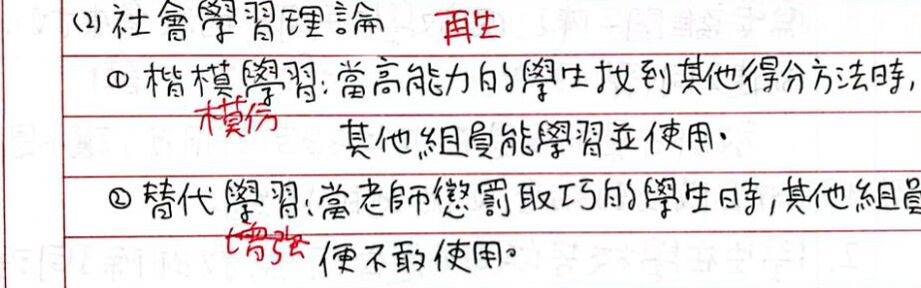 (2)社會學習理論 再生
① 楷模學習:當高能力的學生找到其他得分方法時,
模仿
其他組員能學習並使用。
② 替代學習:當老師懲罰取巧的學生時,其他組員
增強
便不敢使用。